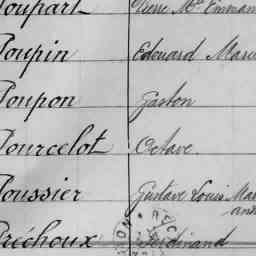 Poupart Pierre Me Emman
Poupin Edouard Marie
Poupon Gaston
Pourcelot Octave
Poussier Gustave Louis Ma
Préchoux Ferdinand